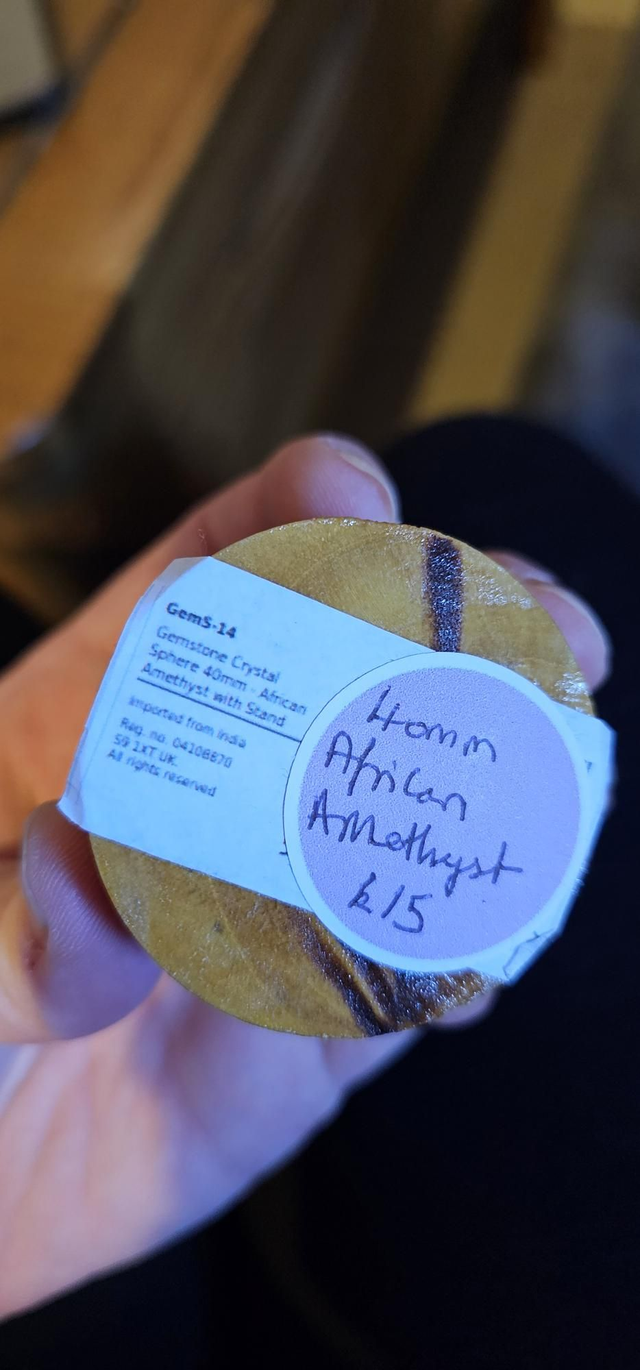 GemS-14
Gemstone Crystal
Sphere 40mm - African
Amethyst with Stand
Imported from India
Reg. no. 04108670
S9 1XT UK.
All rights reserved
40mm
African
Amethyst
£15